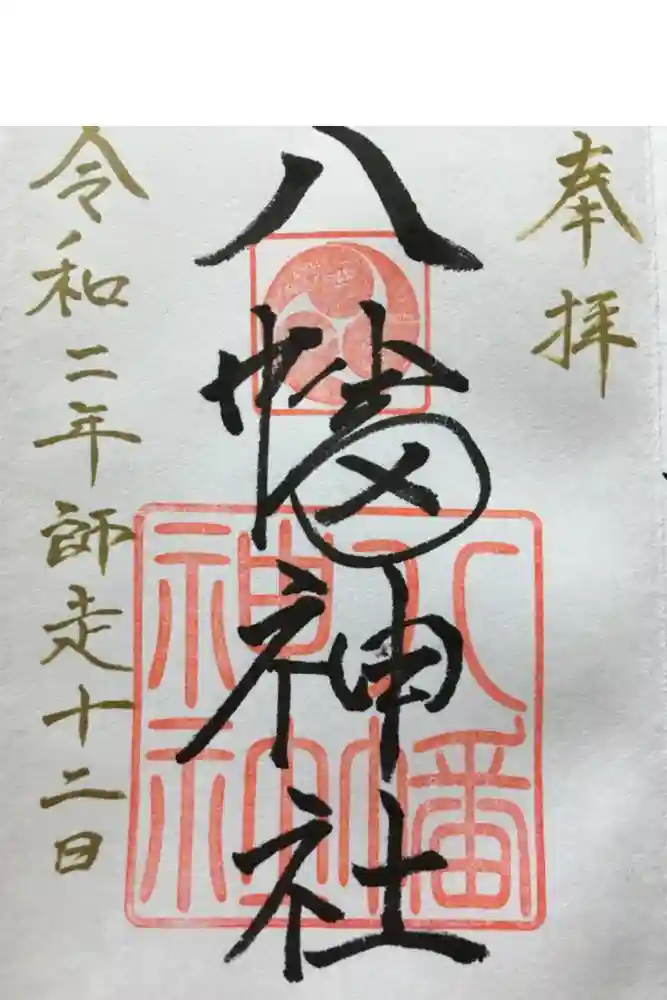 奉拝
八幡神社
八幡神社
令和二年師走十二日